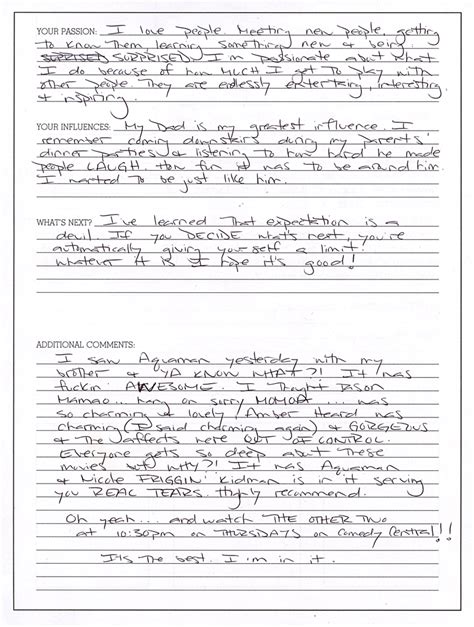 YOUR PASSION: I love people. Meeting new people, getting
to know them, learning something new & being
SUPRISED SURPRISED. I'm passionate about what
I do because of how MUCH I get to play with
other people they are endlessly entertaining, interesting
& inspiring.
YOUR INFLUENCES: My Dad is my greatest influence. I
remember coming downstairs during my parents'
dinner parties & listening to how hard he made
people LAUGH. How fun it was to be around him.
I wanted to be just like him.
WHAT'S NEXT? I've learned that expectation is a
devil. If you DECIDE what's next, you're
automatically giving yourself a limit!
Whatever it is I hope it's good!
ADDITIONAL COMMENTS:
I saw Aquaman yesterday with my
brother & YA KNOW WHAT?! It was
fuckin' AWESOME. I thought Jason
Mamao... hang on sorry MOMOA ... was
so charming & lovely! Amber Heard was
charming (I said charming again) & GORGEOUS
& The affects were OUT OF CONTROL.
Everyone gets so deep about these
movies but why?! It was Aquaman
& Nicole FRIGGIN' Kidman is in it serving
you REAL TEARS. Highly recommend.
Oh yeah... and watch THE OTHER TWO
at 10:30pm on THURSDAYS on Comedy Central!!
It's the best. I'm in it.